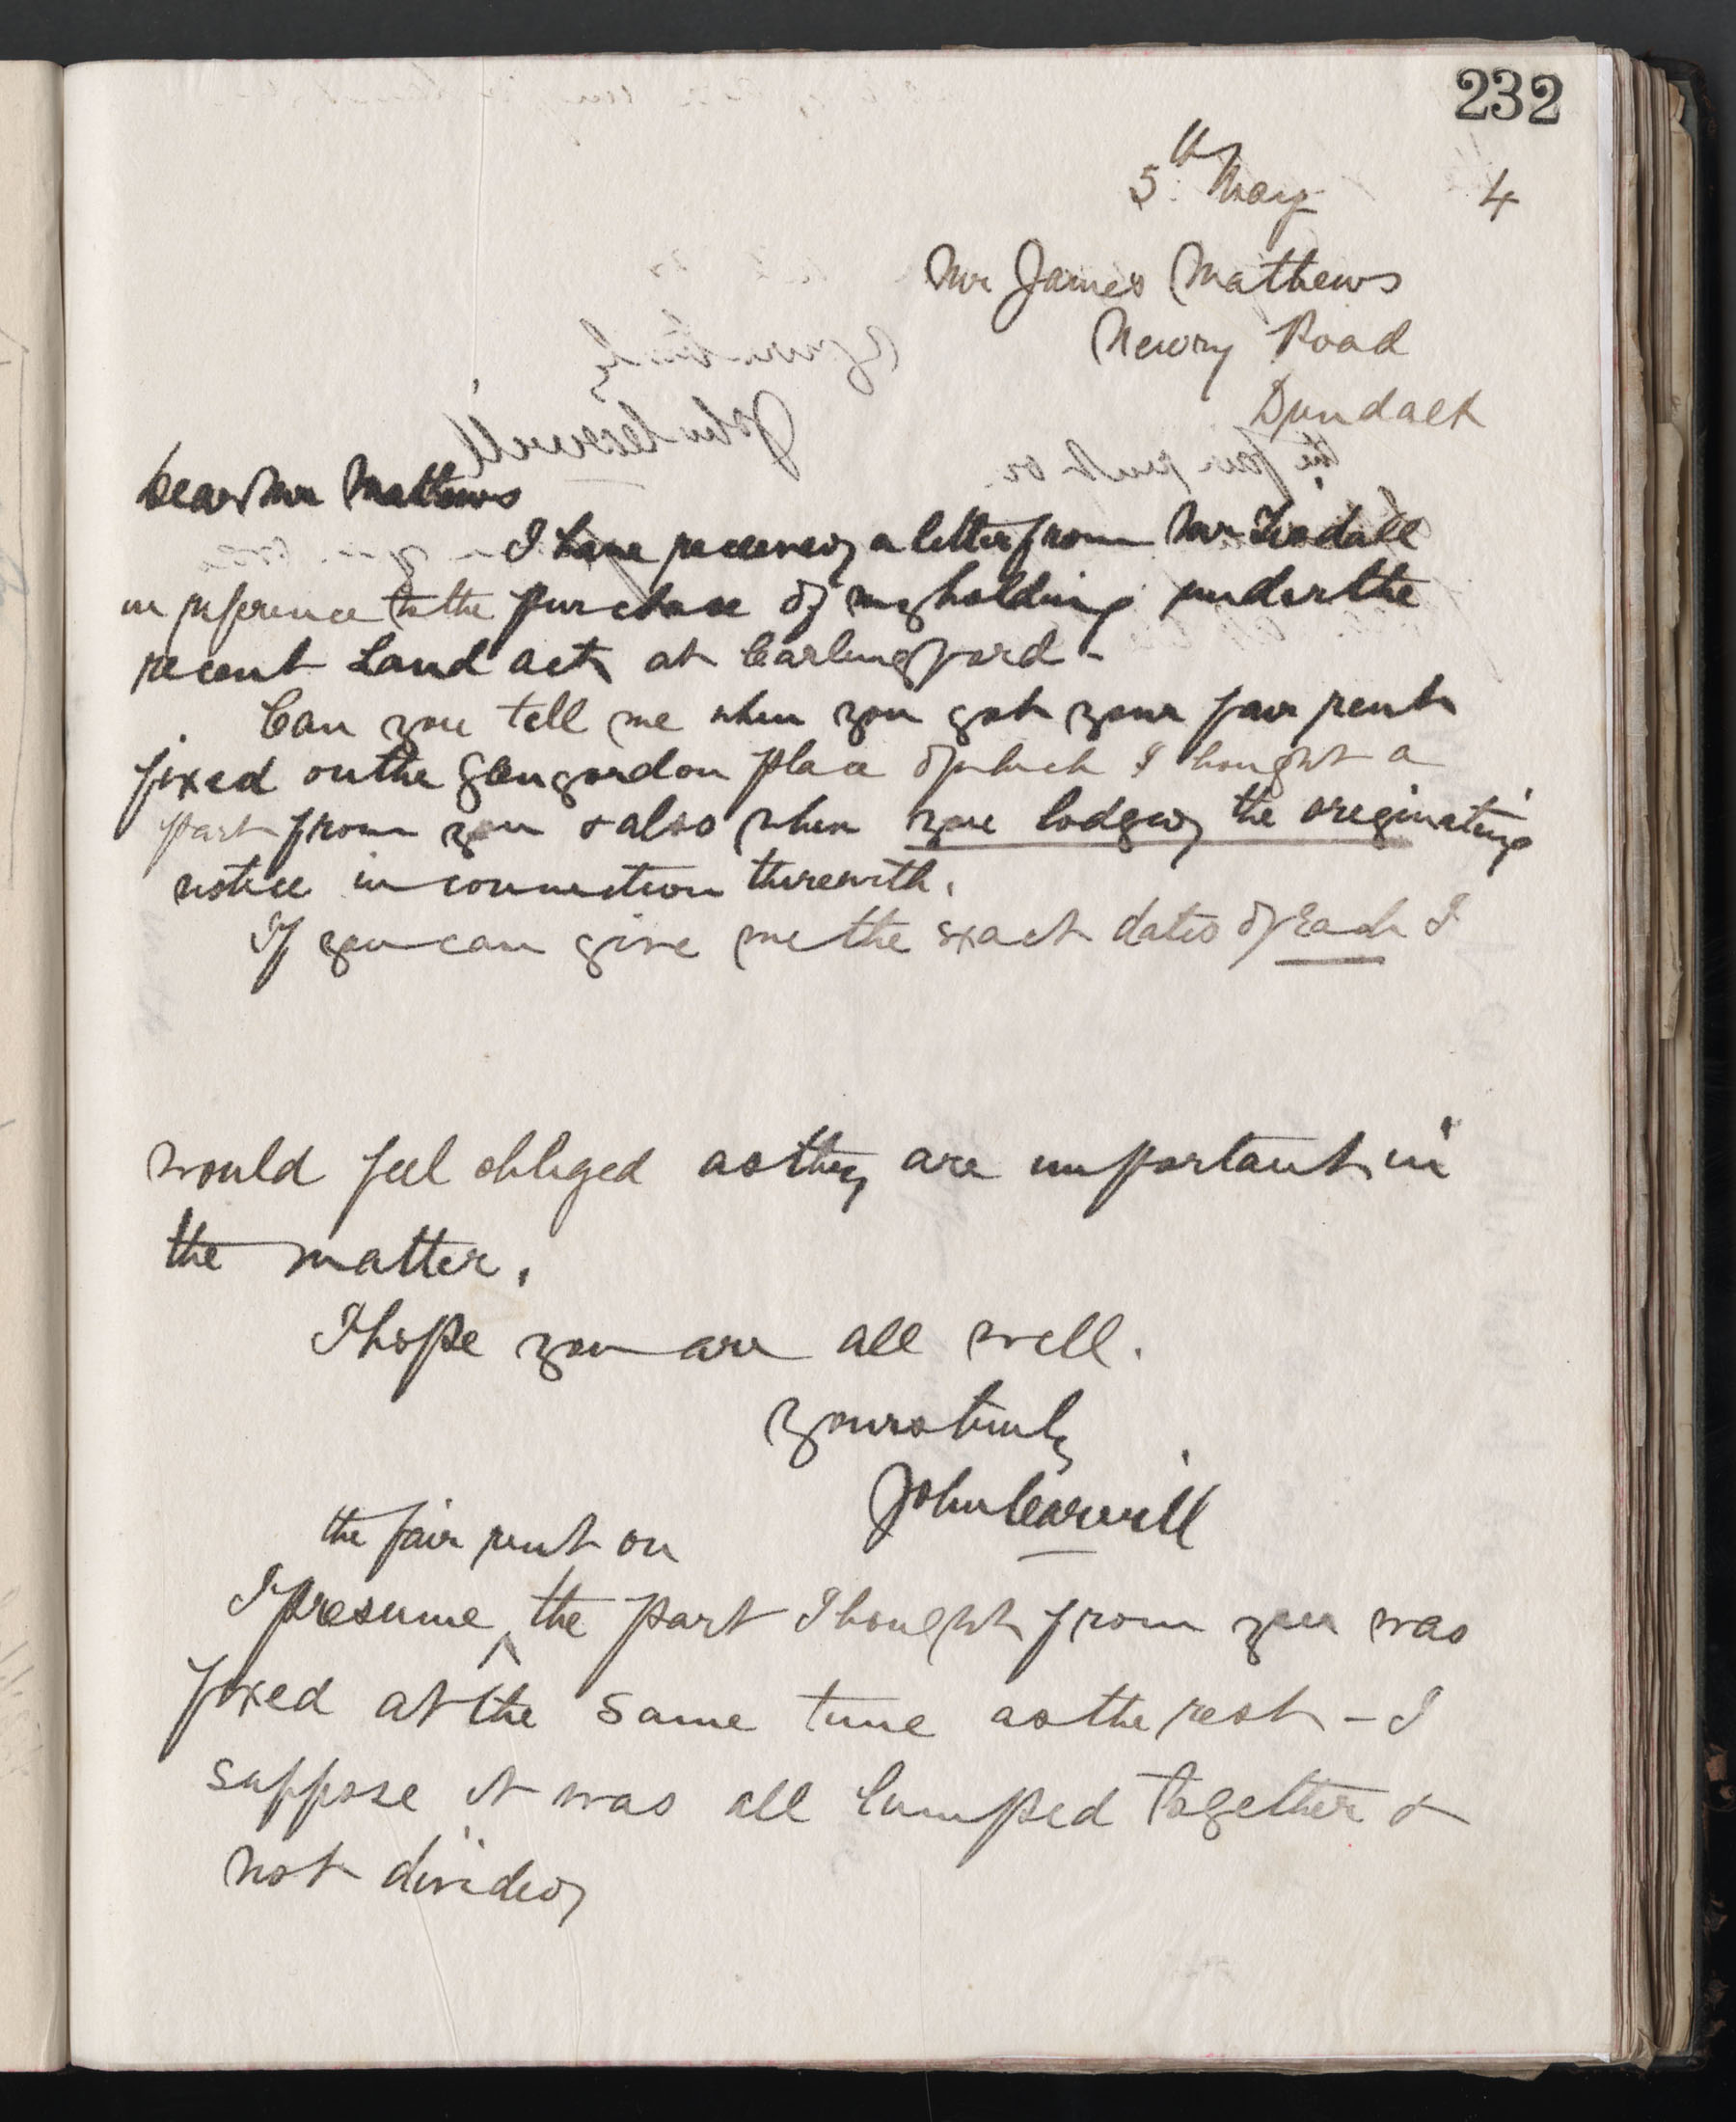 232
5th May 4
Mr James Mathews
Newry Road
Dundalk
Dear Mr Mathews
I have received a letter from Mr Tisdall
in reference to the purchase of my holding under the
recent Land act at Carlingford -
Can you tell me when you got your fair rent
fixed on the Glengordon place of which I bought a
part from you & also when you lodged the originating
notice in connection therewith.
If you can give me the exact dates of Each I
would feel obliged as they are important in
the matter.
I hope you are all well.
Yours truly
John
the fair rent on
I presume ^ the part I bought from you was
fixed at the same time as the rest - I
suppose it was all lumped together &
not divided